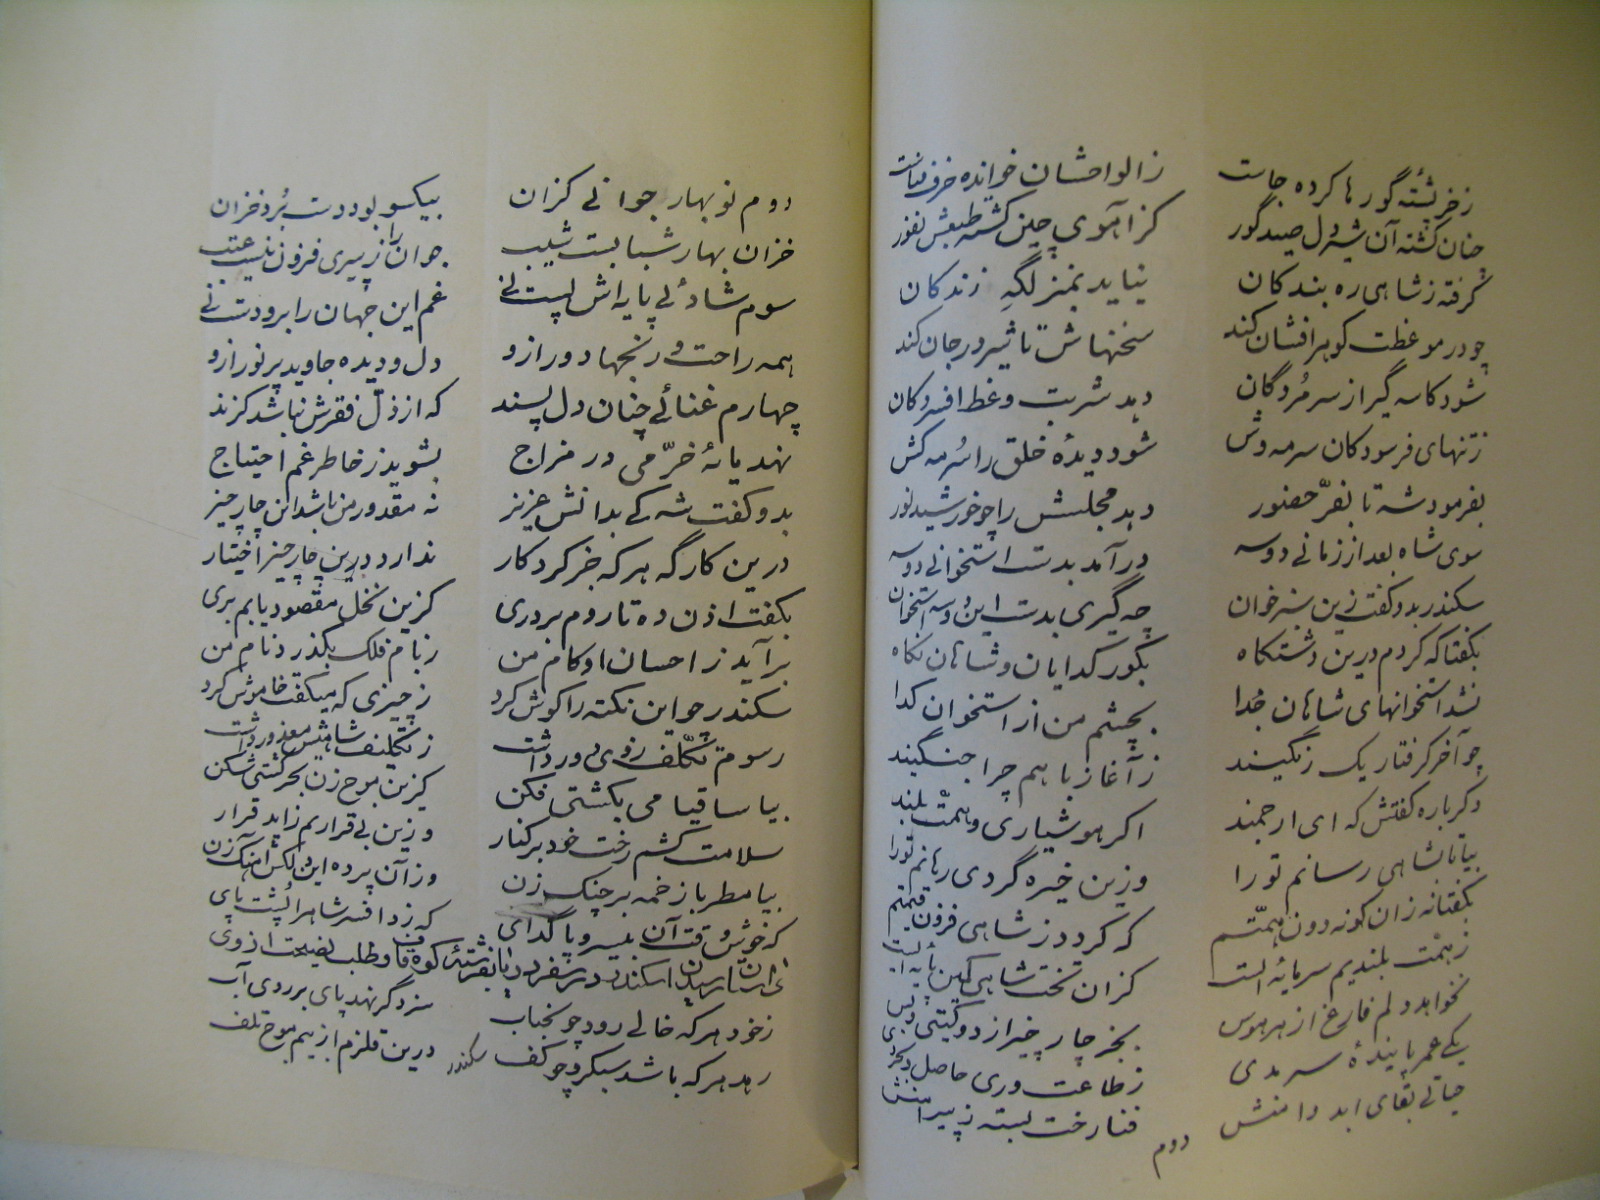 ز خرپشته گورها کرده جاست ز الواحشان خوانده حرف نباست
چنان گشته آن شیردل صید گور کز آهوی چین گشته طبعش نفور
گرفته ز شاهی ره بندگان نیاید بمنزلگه زندگان
چو در موعظت گوهرافشان کند سخنهاش تاثیر در جان کند
شود کاسه گیر از سر مُردگان دهد شربت وعظ افسردگان
ز تنهای فرسودگان سرمه وش شود دیدهٔ خلق را سُرمه کش
بفرمود شه تا بفرّ حضور دهد مجلسش را چو خورشید نور
سوی شاه بعد از زمانی دوسه درآمد بدست استخوانی دوسه
سکندر بدو گفت زین سرخوان چه گیری بدست این دوسه استخوان
بگفتا که کردم درین دستگاه بگور گدایان و شاهان نگاه
نشد استخوانهای شاهان جُدا بچشم من از استخوان گدا
چو آخر گرفتار یک زنگیند ز آغاز با هم چرا جنگیند
دگرباره گفتش که ای ارجمند اگر هوشیاری و همّت بلند
بیا تا بشاهی رسانم تورا وزین خیره گردی رهانم تورا
بگفتا نه زان گونه دون همّتم که گردد ز شاهی فزون قیمتم
ز همّت بلندیم سرمایه ایست کزان تخت شاهی کمین پایه ایست
نخواهد دلم فارغ از هر هوس بجز چار چیز از دو گیتی و بس
یکے عمر پایندهٔ سرمدی ز طاعت وری حاصل
حیاتے بقای ابد دامنش فنا رخت بسته ز پیرامنش
دوم
دوم نوبهار جوانے کزان بیکسو بود دست بُرد خزان
خزان بهار شبابست شیب جوان را ز پیری فزون نیست عیب
سوم شادیٔے پایه اش پست نے غم این جهان را برو دست نے
همه راحت و رنجها دور ازو دل و دیده جاوید پر نور ازو
چهارم غنائے چنان دل پسند که از ذلّ فقرش نباشد گزند
نهد مایهٔ خرّمی در مزاج بشوید ز خاطر غم احتیاج
بدو گفت شه کے بدانش عزیز نه مقدور من باشد این چار چیز
درین کارگه هرکه جز کردکار ندارد درین چار چیز اختیار
بگفت اذن ده تا روم بر دری کزین نخل مقصود یابم بری
برآید ز احسان او کام من ز بام فلک بگذرد نام من
سکندر چو این نکته را گوش کرد ز چیزی که میگفت خاموش کرد
رسوم تکلّف ز وی دور داشت ز تکلیف شاهیش معذور داشت
بیا ساقیا می بکشتی فکن کزین موج زن بحر کشتی شکن
سلامت کشم رخت خود بر کنار وزین بی قراریم زاید قرار
بیا مطربا زخمه بر چنگ زن وزان پرده این دلکش آهنگ زن
که خوش وقت آن بیسر و پا گدای که زد افسر شاهرا پُشت پای
داستان رسیدن اسکندر در سفر دریا بفرشتهٔ کوه قاف و طلب نصیحت از وی
ز خود هر که خالے رود چو حباب سزد گر نهد پای بر روی آب
رهد هر که باشد سبکرو چو کف درین قلزم از بیم موج تلف
سکندر